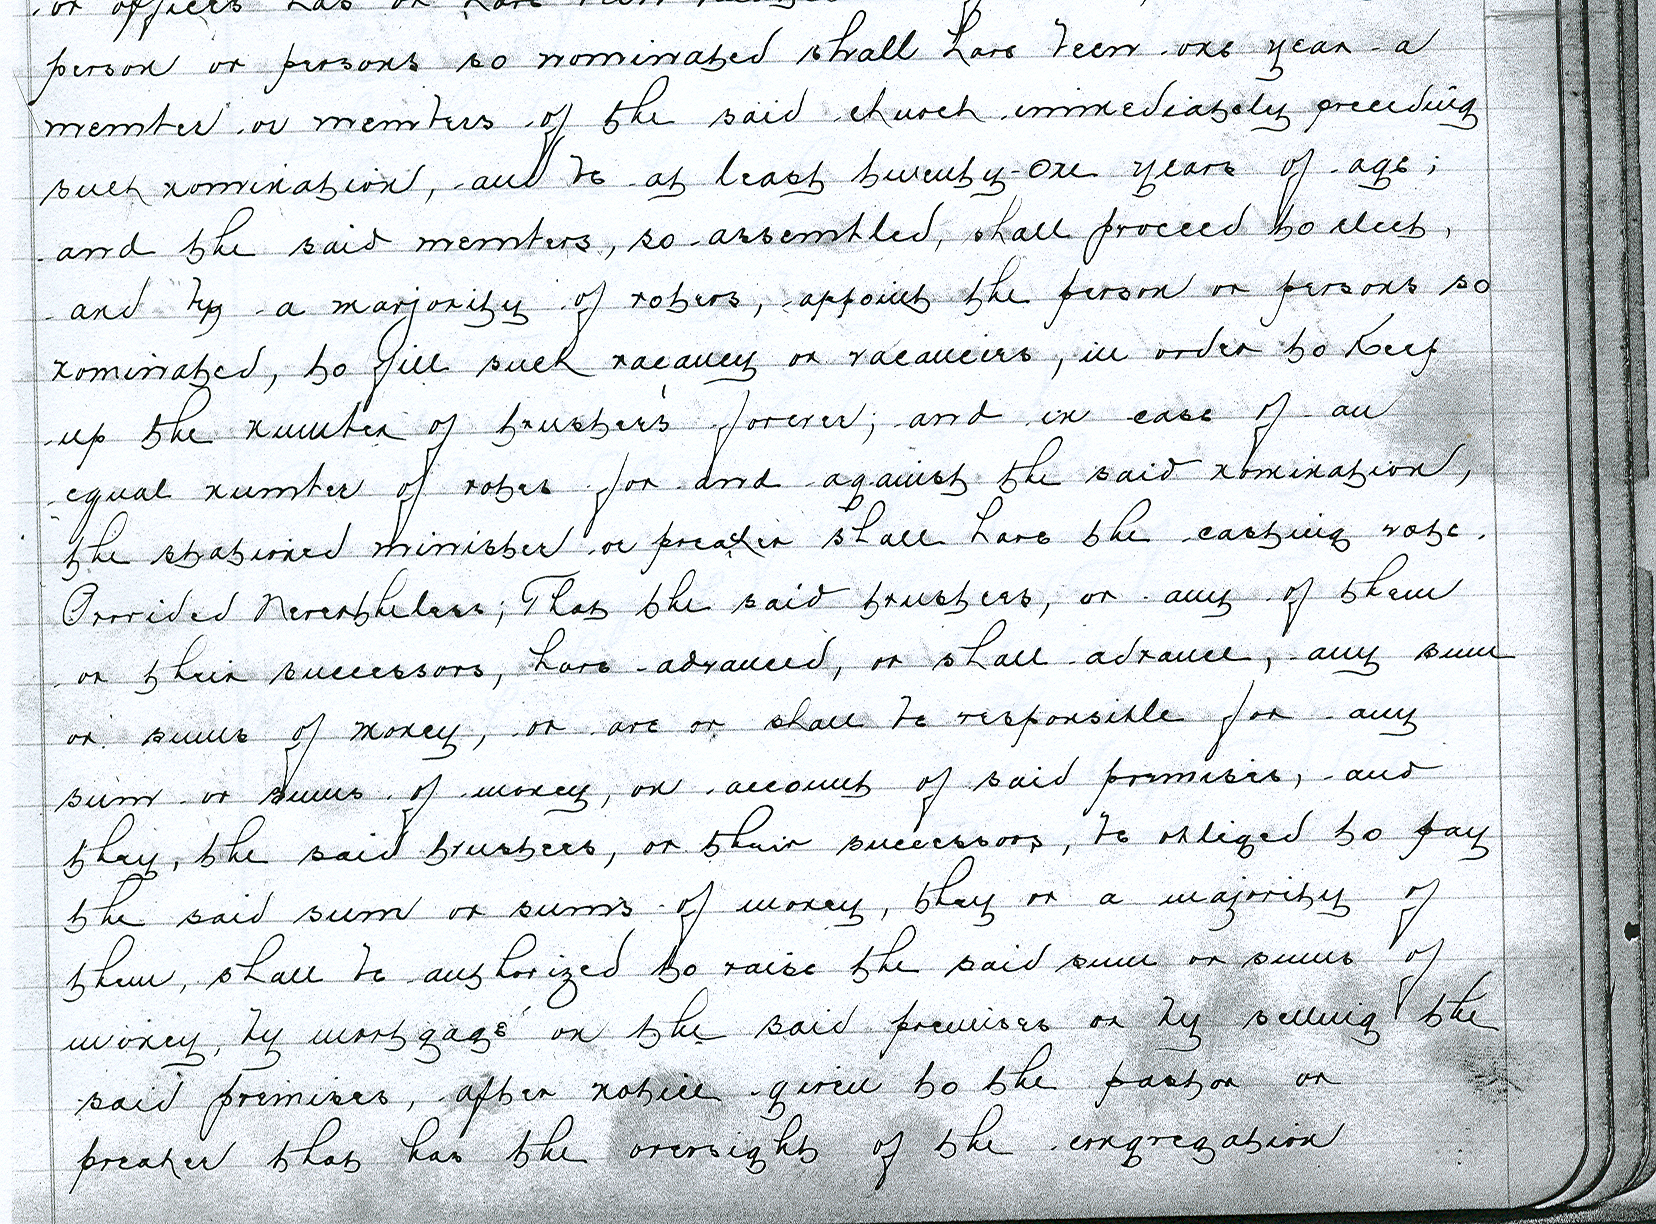 or officers has or have been
person or persons so nominated shall have been one year a
member or members of the said church immediately preceding
such nomination, and be at least twenty-one years of age;
and the said members, so assembled, shall proceed to elect,
and by a marjority of voters, appoint the person or persons so
nominated, to fill such vacancy or vacancies, in order to Keep
up the number of trustees forever; and in case of an
equal number of votes for and against the said nomination,
the stationed minister or preaher shall have the casting vote.
Provided Nevertheless; That the said trustees, or any of them
or their successors, have advanced, or shall advance, any sum
or sums of money, or are or shall be responsible for any
sum or sums of money, on account of said premises, and
they, the said trustees, or their successors, be obliged to pay
the said sum or sums of money, they or a majority of
them, shall be authorized to raise the said sum or sums of
money, by mortgage on the said premises or by selling the
said premises, after notice given to the pastor or
preaher that has the oversight of the congregation